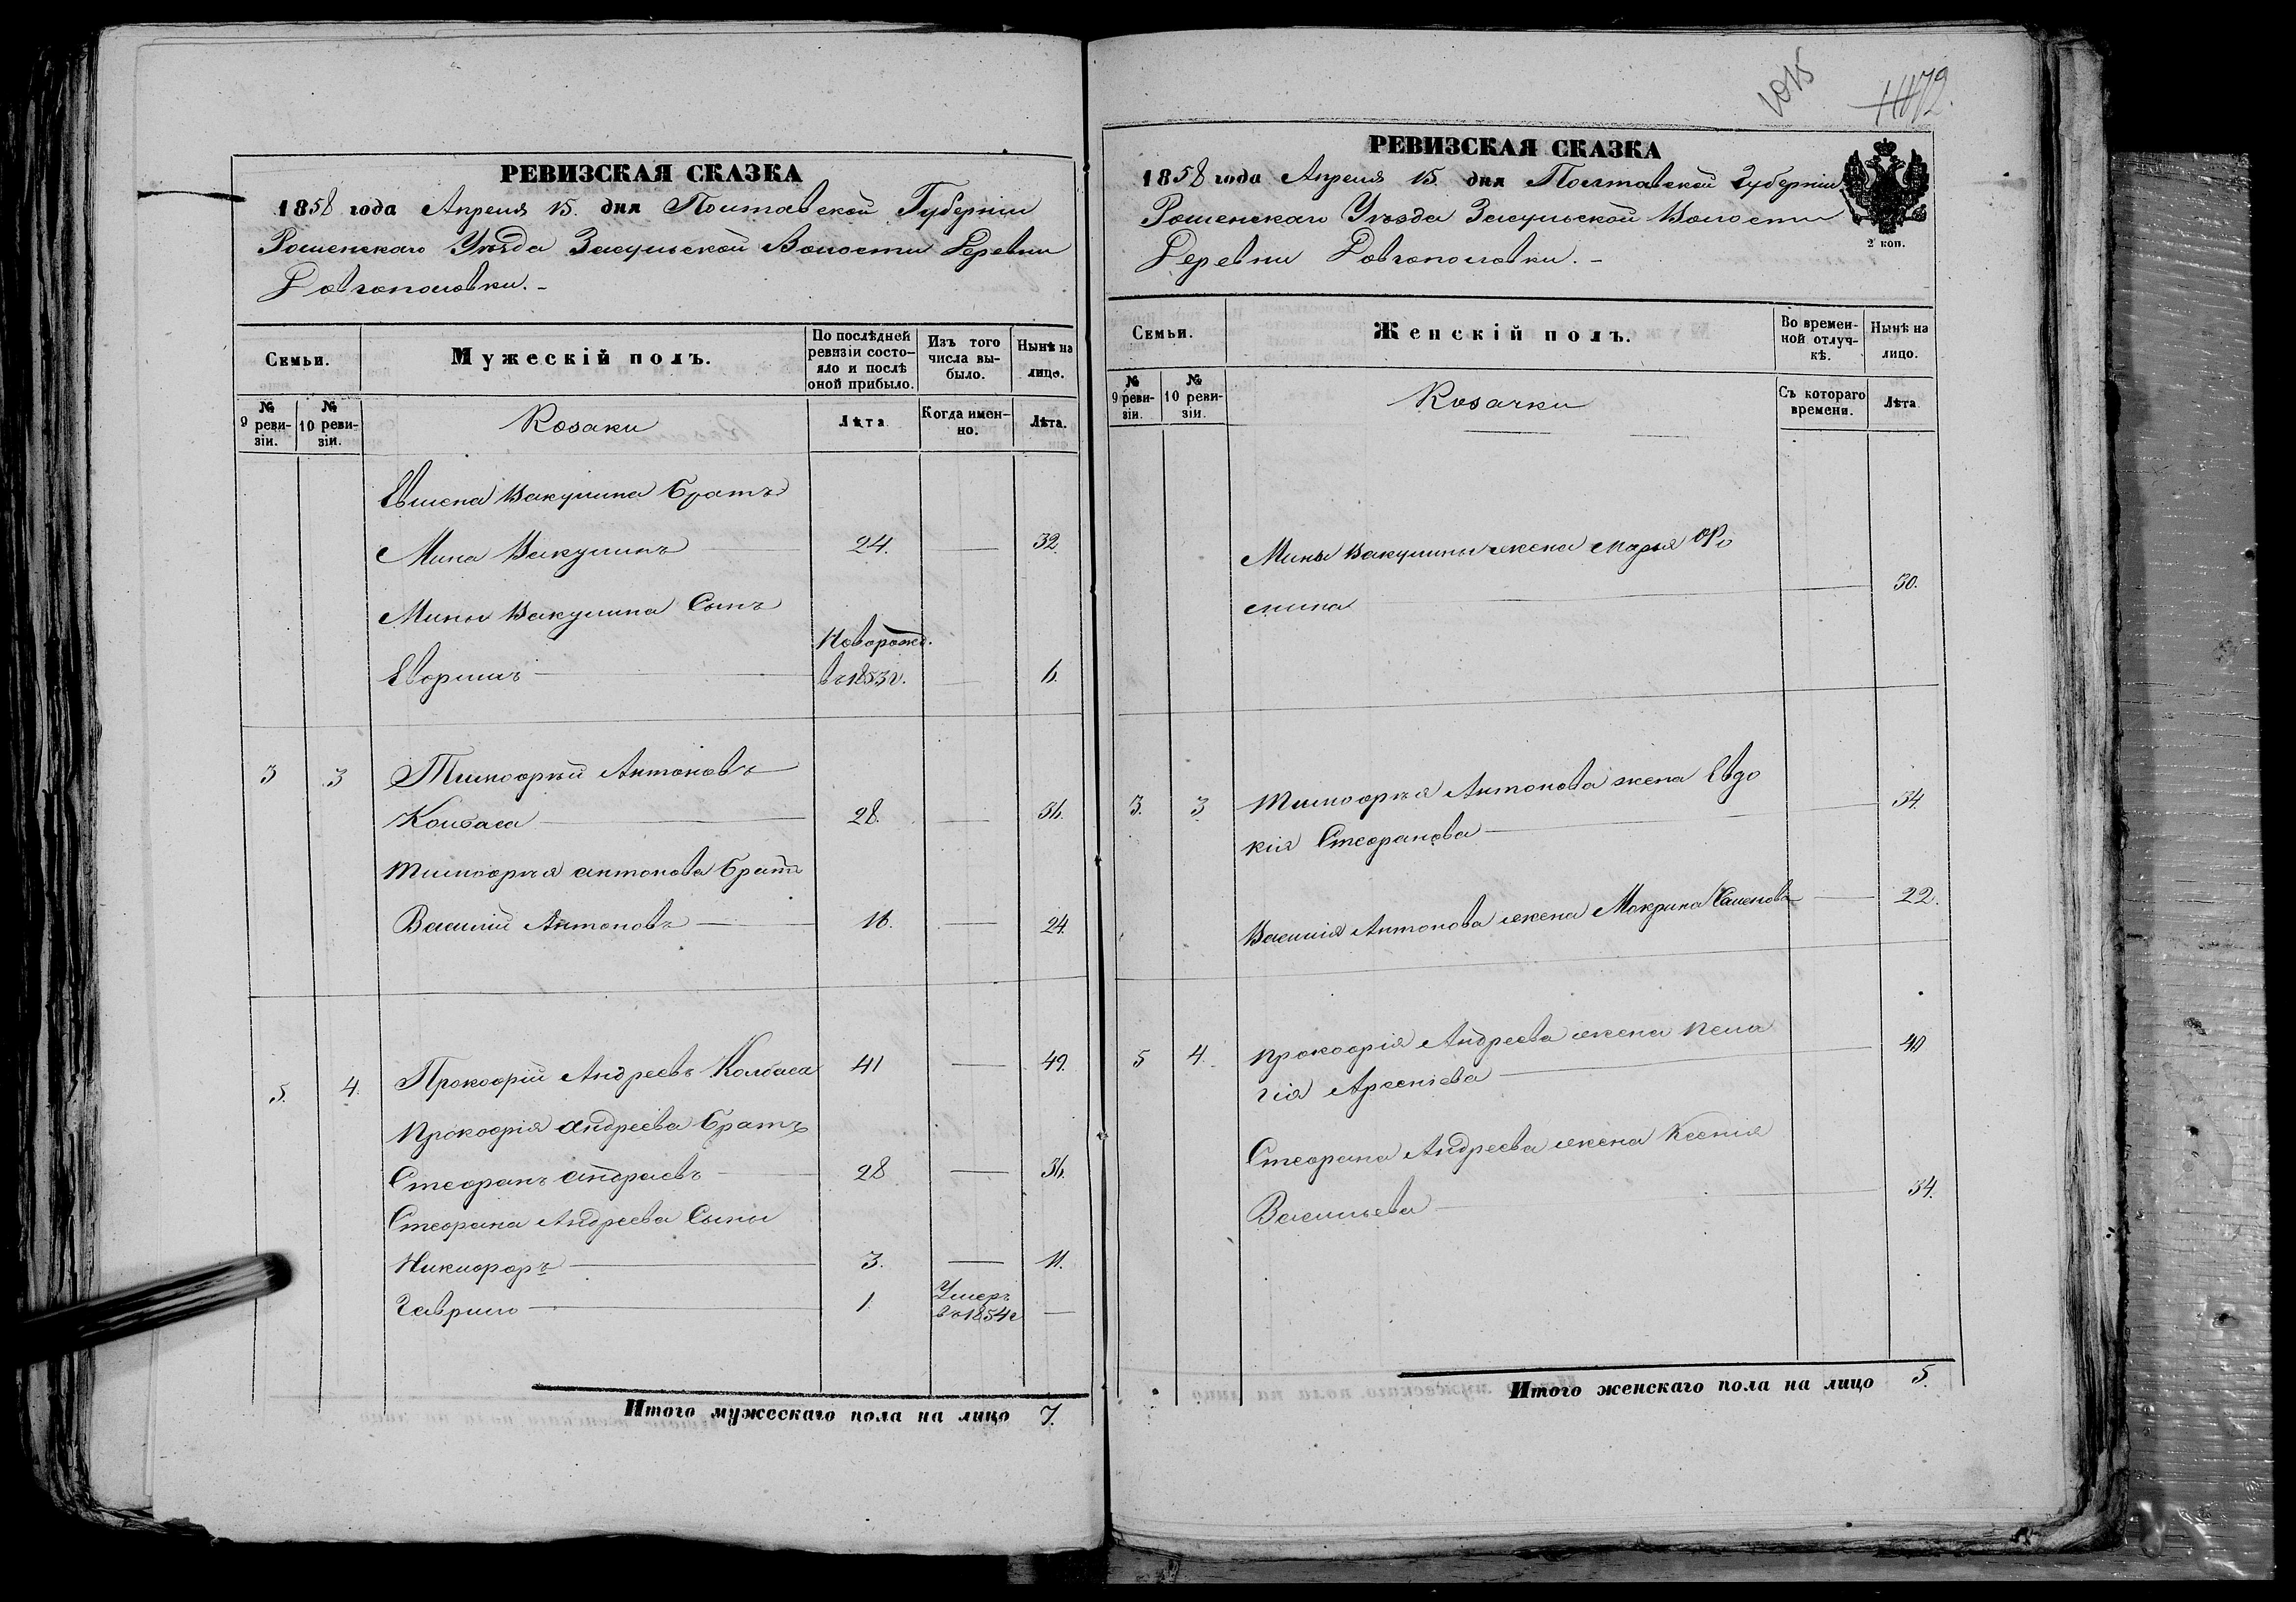 РЕВИЗСКАЯ СКАЗКА
1858 года Апреля 15. дня Полтавской Губерніи
Роменскаго Уѣзда Засульской Волости Деревни
Довгополовки.-
Семьи.
Мужескій полъ.
По послѣдней ревизіи состояло и послѣ оной прибыло.
Изъ того числа выбыло.
Нынѣ на лицо.
№ 9 ревизіи.
№ 10 ревизіи.
Козаки
Лѣта
Когда именно.
Лѣта.
Вакулина братъ
Мина Вакулинъ 24. — 32.
Мины Вакулина Сынъ
Новорожд.
въ 1853 г. — 6.
3 3 Тимофѣй Антоновъ
Колбаса 28. — 36.
Тимофѣя антонова братъ
Василій Антоновъ 16. — 24.
5. 4. Прокофій Андреевъ Колбаса 41 — 49.
Прокофія андреева братъ
Стефанъ андреевъ 28 — 36.
Стефана Андреева Сыны
Никифоръ 3. — 11.
Гаврило 1. Умеръ въ 1854 г —
Итого мужескаго пола на лицо 7.
1015
1072.
РЕВИЗСКАЯ СКАЗКА
1858 года Апреля 15. дня Полтавской Губерніи
Роменскаго Уѣзда Засульской Волости
Деревни Довгополовки.-
2 коп.
Семьи.
Женскій полъ.
Во временной отлучкѣ.
Нынѣ на лицо.
№ 9 ревизіи.
№ 10 ревизіи.
Козачки
Съ котораго времени.
Лѣта
Мины Вакулины жена Марья Фо
мина — 30.
3. 3 Тимофѣя Антонова жена Евдо
кія Стефанова — 34.
Василія Антонова жена Макрина Семенова — 22.
5 4. Прокофія Андреева жена Пела
гія Арсеніева — 40
Стефана Андреева жена Ксенія
Васильева 34.
Итого женскаго пола на лицо 5.